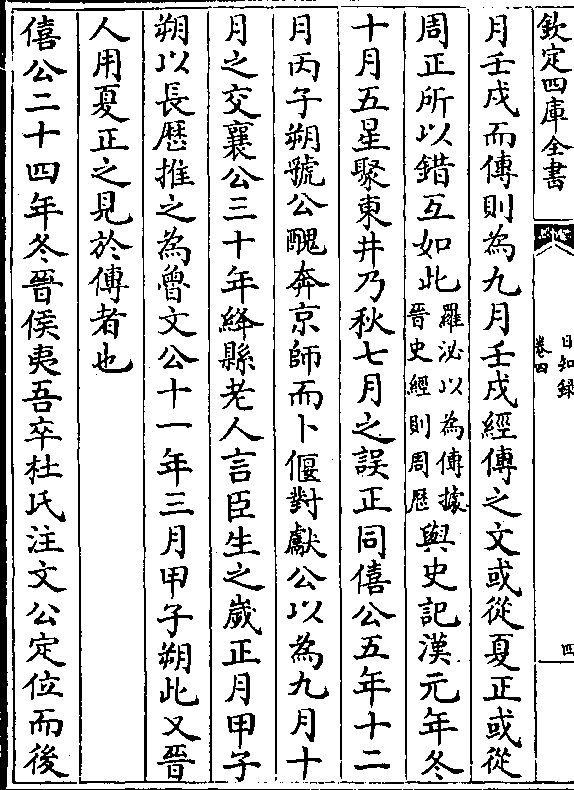 欽定四庫全書
日知録
卷四
四
月壬戌而傳則為九月壬戌經傳之文或從夏正或從
周正所以錯互如此羅泌以為傳據晉史經則周厯與史記漢元年冬
十月五星聚東井乃秋七月之誤正同僖公五年十二
月丙子朔虢公醜奔京師而卜偃對獻公以為九月十
月之交襄公三十年絳縣老人言臣生之嵗正月甲子
朔以長厯推之為魯文公十一年三月甲子朔此又晉
人用夏正之見於傳者也
僖公二十四年冬晉侯夷吾卒杜氏注文公定位而後